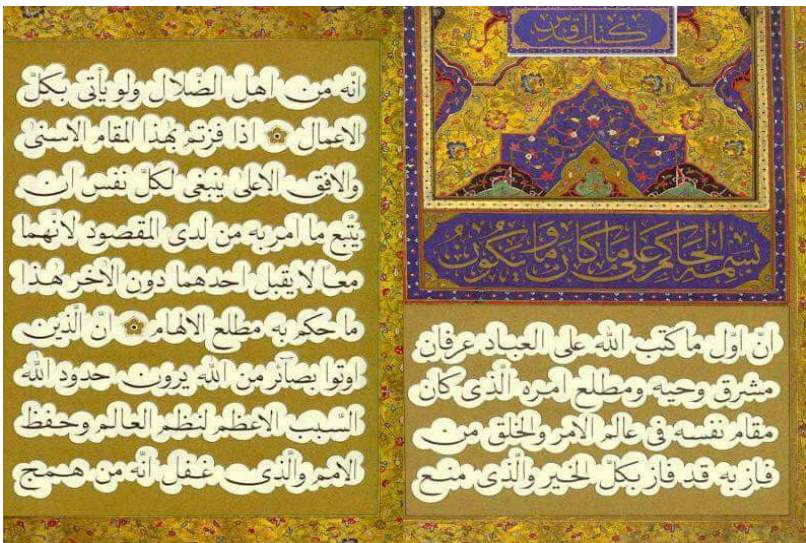 كتاب اقدس
بسمه الحاكم على ما كان وما يكون
انّ اوّل ما كتب الله على العباد عرفان
مشرق وحيه ومطلع امره الّذى كان
مقام نفسه فى عالم الامر والخلق من
فاز به قد فاز بكلّ الخير والّذى منع
انّه من اهل الضّلال ولو يأتى بكلّ
الاعمال اذا فزتم بهذا المقام الاسنى
والافق الاعلى ينبغى لكلّ نفس ان
يتّبع ما امر به من لدى المقصود لانّهما
معاً لا يقبل احدهما دون الآخر هذا
ما حكم به مطلع الالهام انّ الّذين
اوتوا بصآئر من الله يرون حدود الله
السّبب الاعظم لنظم العالم وحفظ
الامم والّذى غفل انّه من همج